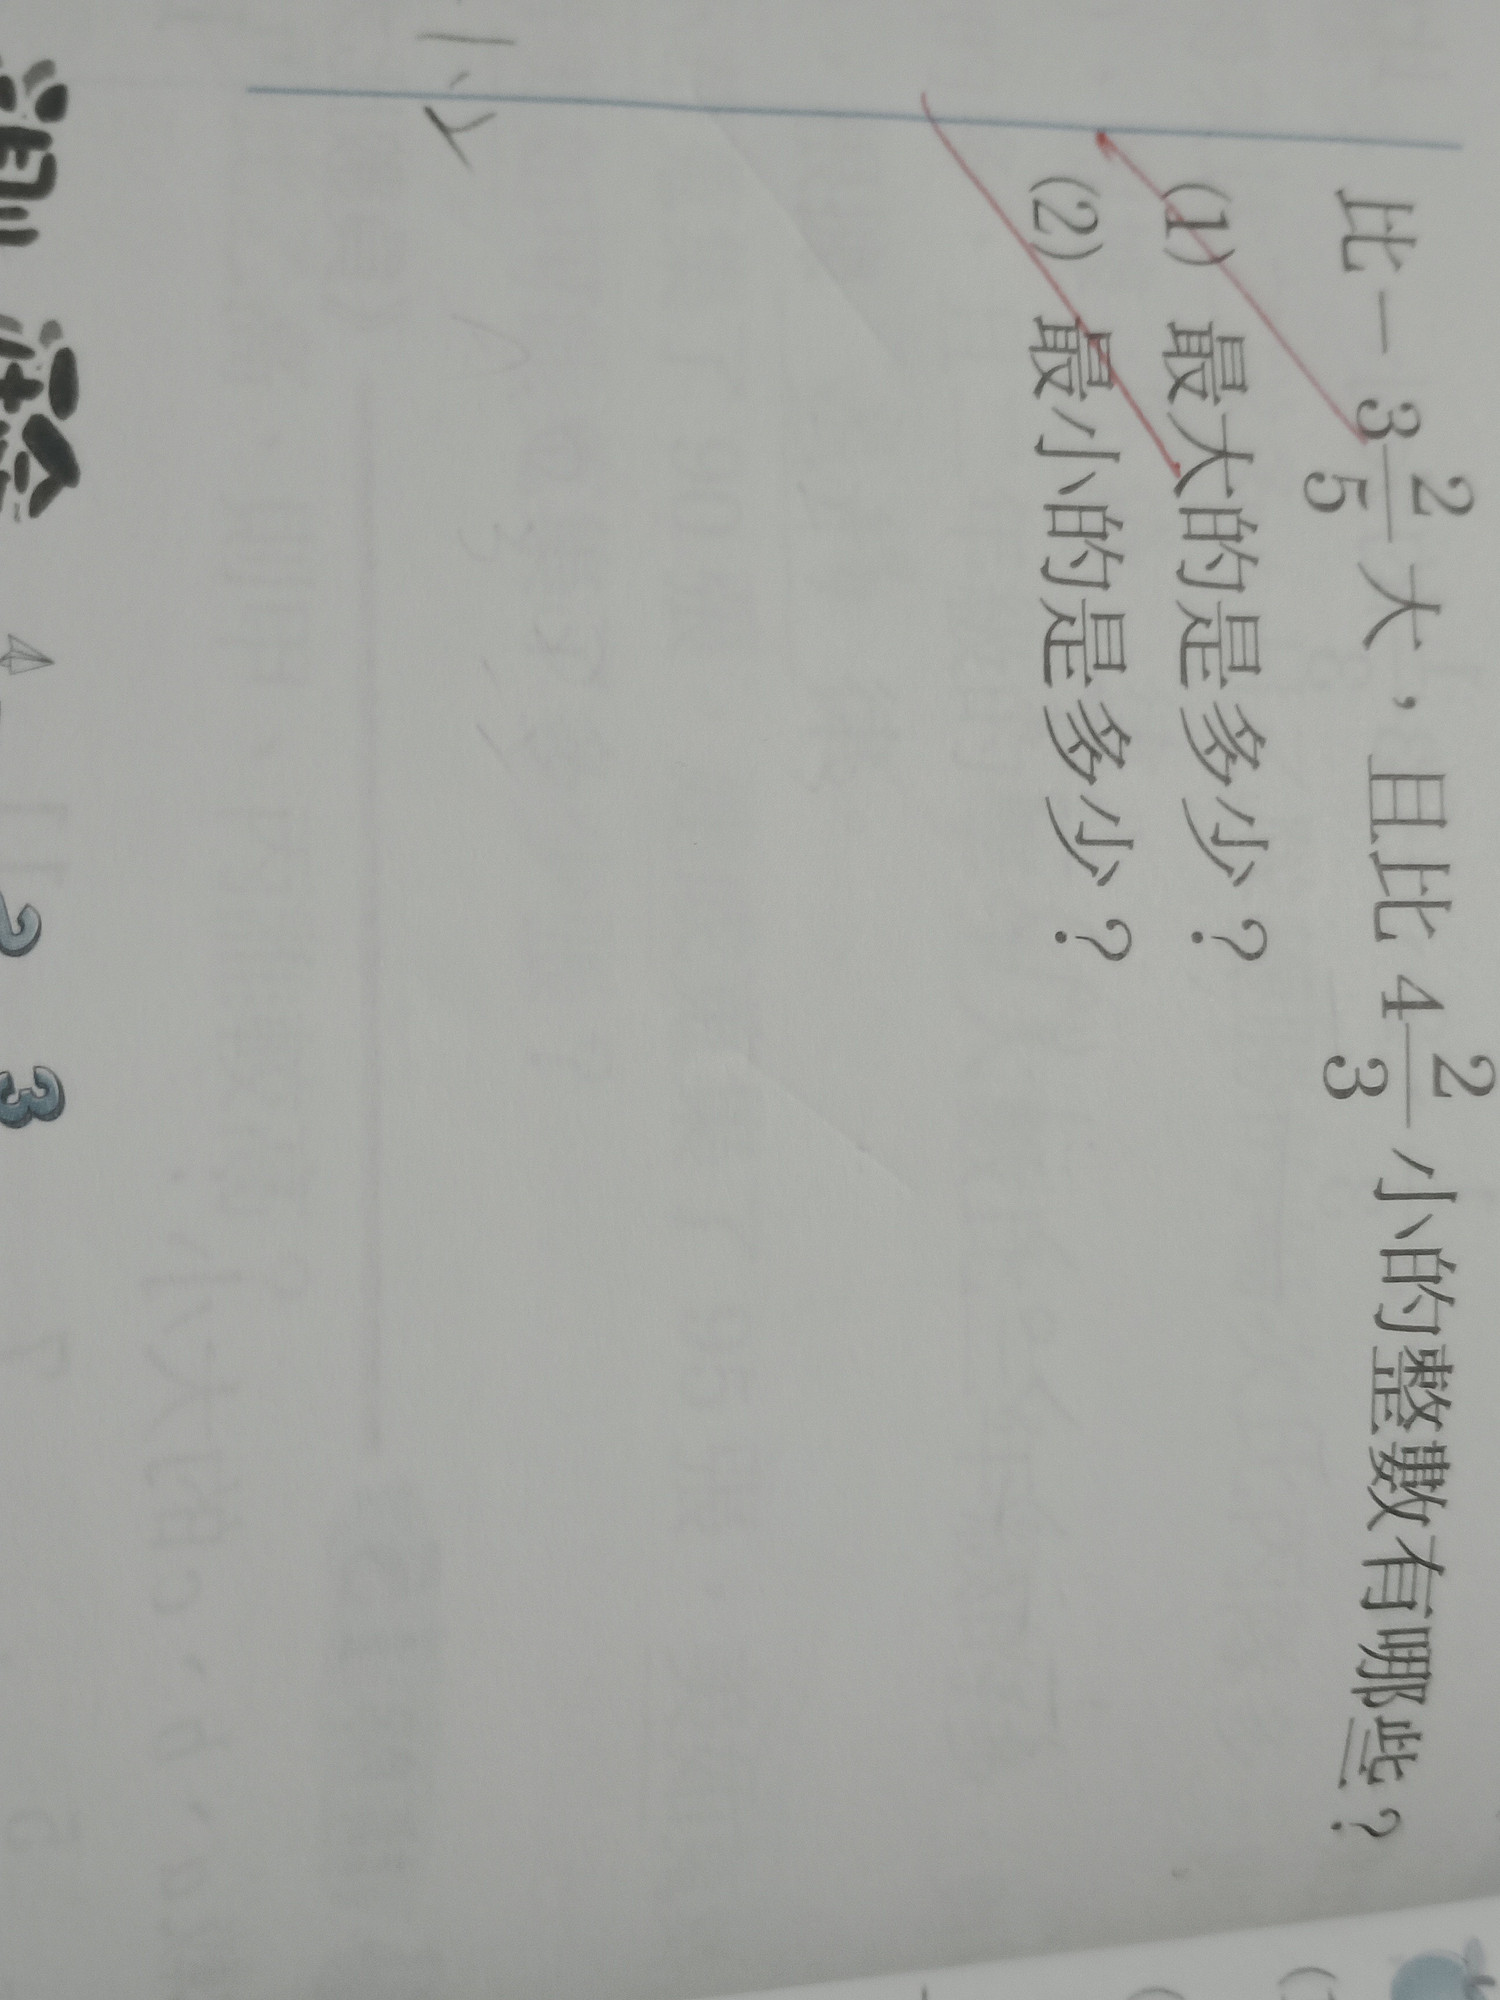 比-3 2/5 大，且比 4 2/3 小的整數有哪些？
(1) 最大的是多少？
(2) 最小的是多少？
2 3